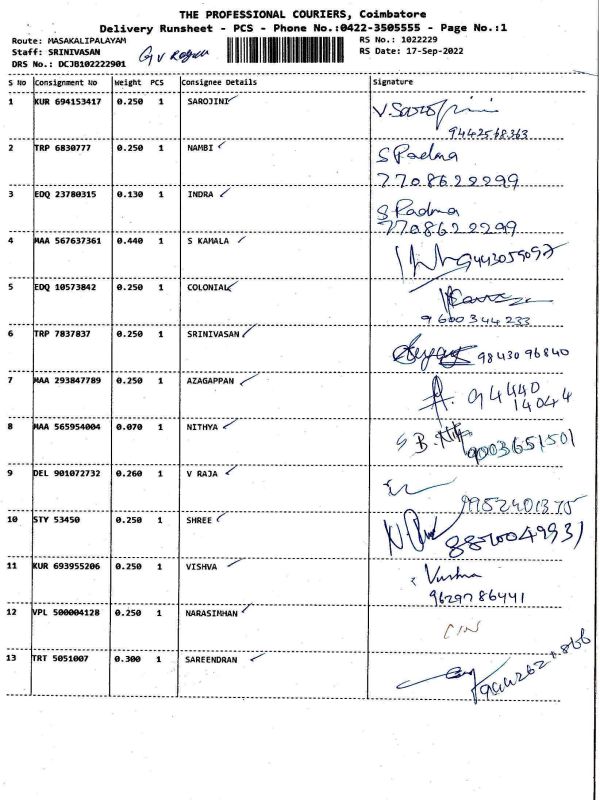 THE PROFESSIONAL COURIERS, Coimbatore
Delivery Runsheet - PCS - Phone No.:0422-3505555 - Page No.:1
Route: MASAKALIPALAYAM RS No.: 1022229
Staff: SRINIVASAN RS Date: 17-Sep-2022
DRS No.: DCJB102222901
S No Consignment No Weight PCS Consignee Details Signature
1 KUR 694153417 0.250 1 SAROJINI V. Sarojini
9442568363
2 TRP 6830777 0.250 1 NAMBI S Padma
7708622299
3 EDQ 23780315 0.130 1 INDRA S Padma
7708622299
4 MAA 567637361 0.440 1 S KAMALA 9443059097
5 EDQ 10573842 0.250 1 COLONIAL
9600344233
6 TRP 7837837 0.250 1 SRINIVASAN 9843096840
7 MAA 293847789 0.250 1 AZAGAPPAN A. 94440
14044
8 MAA 565954004 0.070 1 NITHYA 9003651501
9 DEL 901072732 0.260 1 V RAJA
9952401375
10 STY 53450 0.250 1 SHREE
11 KUR 693955206 0.250 1 VISHVA
9629786441
12 VPL 500004128 0.250 1 NARASIMHAN
13 TRT 5051007 0.300 1 SAREENDRAN